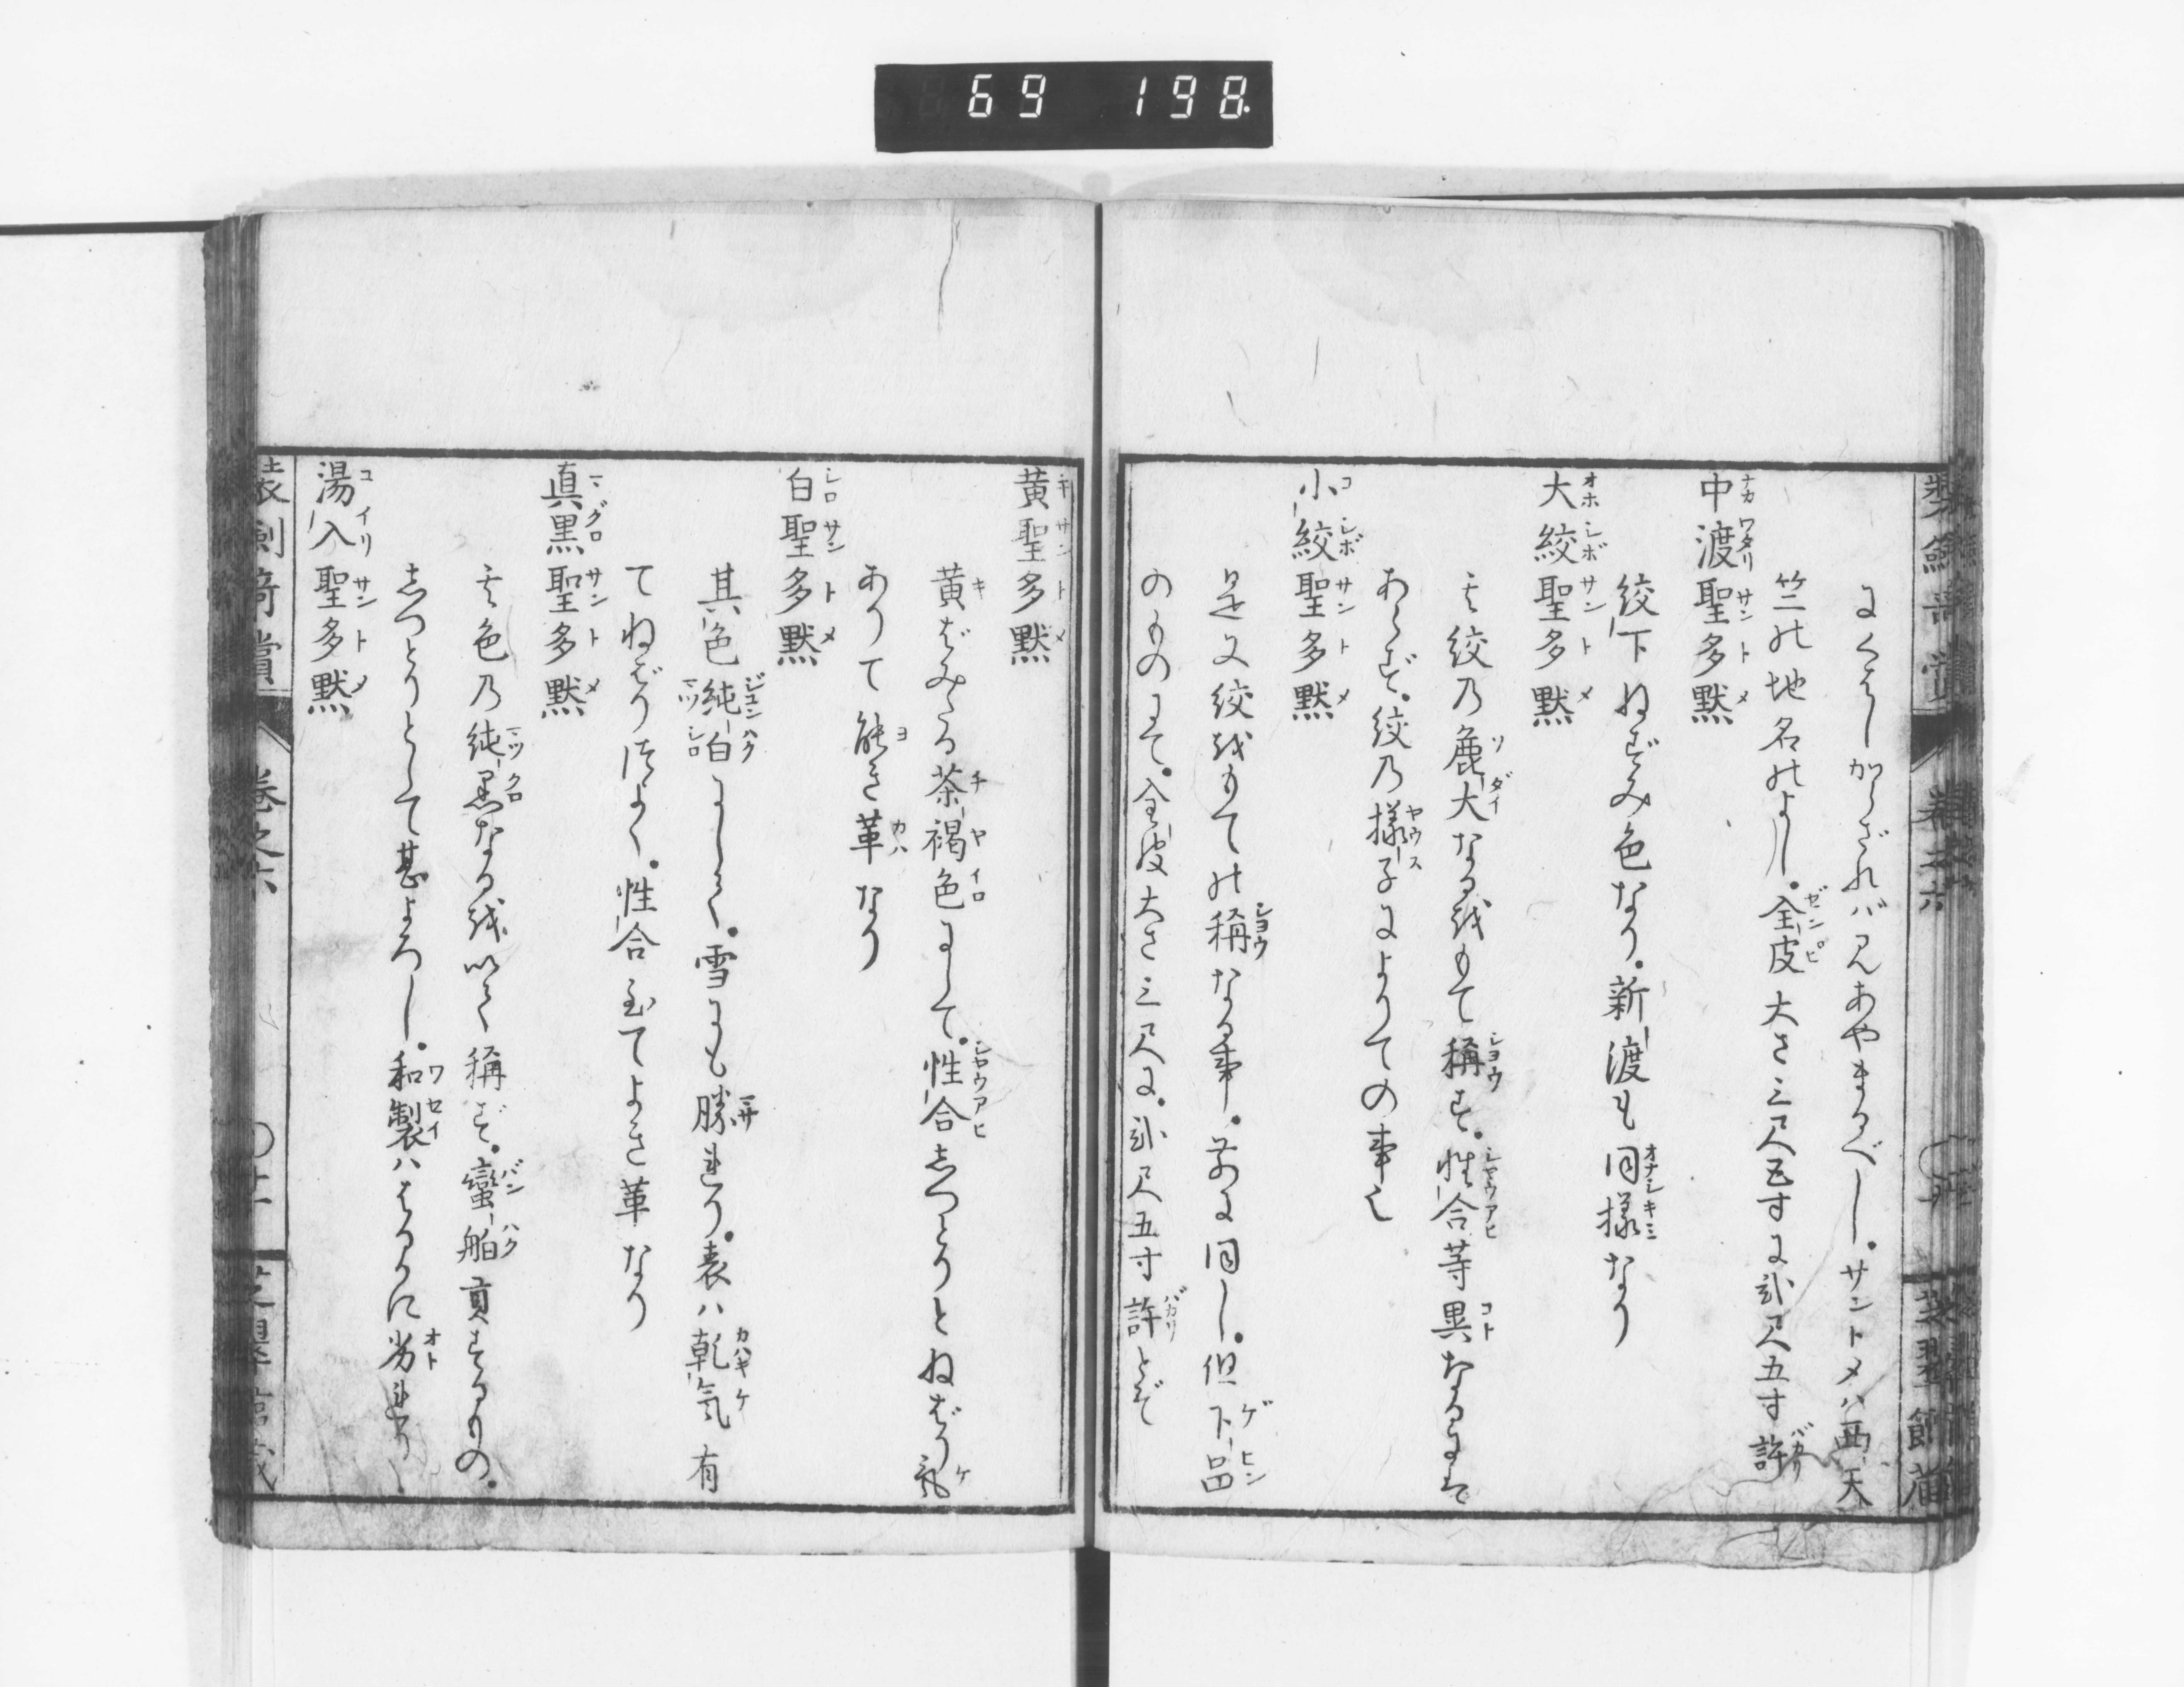 69 198
にくはしからざればんあやまるべし。サントメハ西天
竺の地名のよし。全皮大さ三尺五寸に弐尺五寸許
中渡聖多黙
絞下ねずみ色なり。新渡も同様なり
大絞聖多黙
其絞乃麁大なるをもて稱す。性合等異なるには
あらず。絞乃様子によりての事也
小絞聖多黙
是又絞をもての稱なる事。前に同し。但下品
のものにて。全皮大さ三尺に。弐尺五寸許とぞ
黄聖多黙
黄ばみたる茶褐色にして。性合しつとりとねばり気
ありて能き革なり
白聖多黙
其色純白にして。雪にも勝れり。表ハ乾気有
てねばりつよく。性合至てよき革なり
真黒聖多黙
其色乃純黒なるを以て稱ず。蠻舶貢するもの。
しつとりとして甚よろし。和製ハはるかに劣れり
湯入聖多黙
装剣奇賞 巻之六